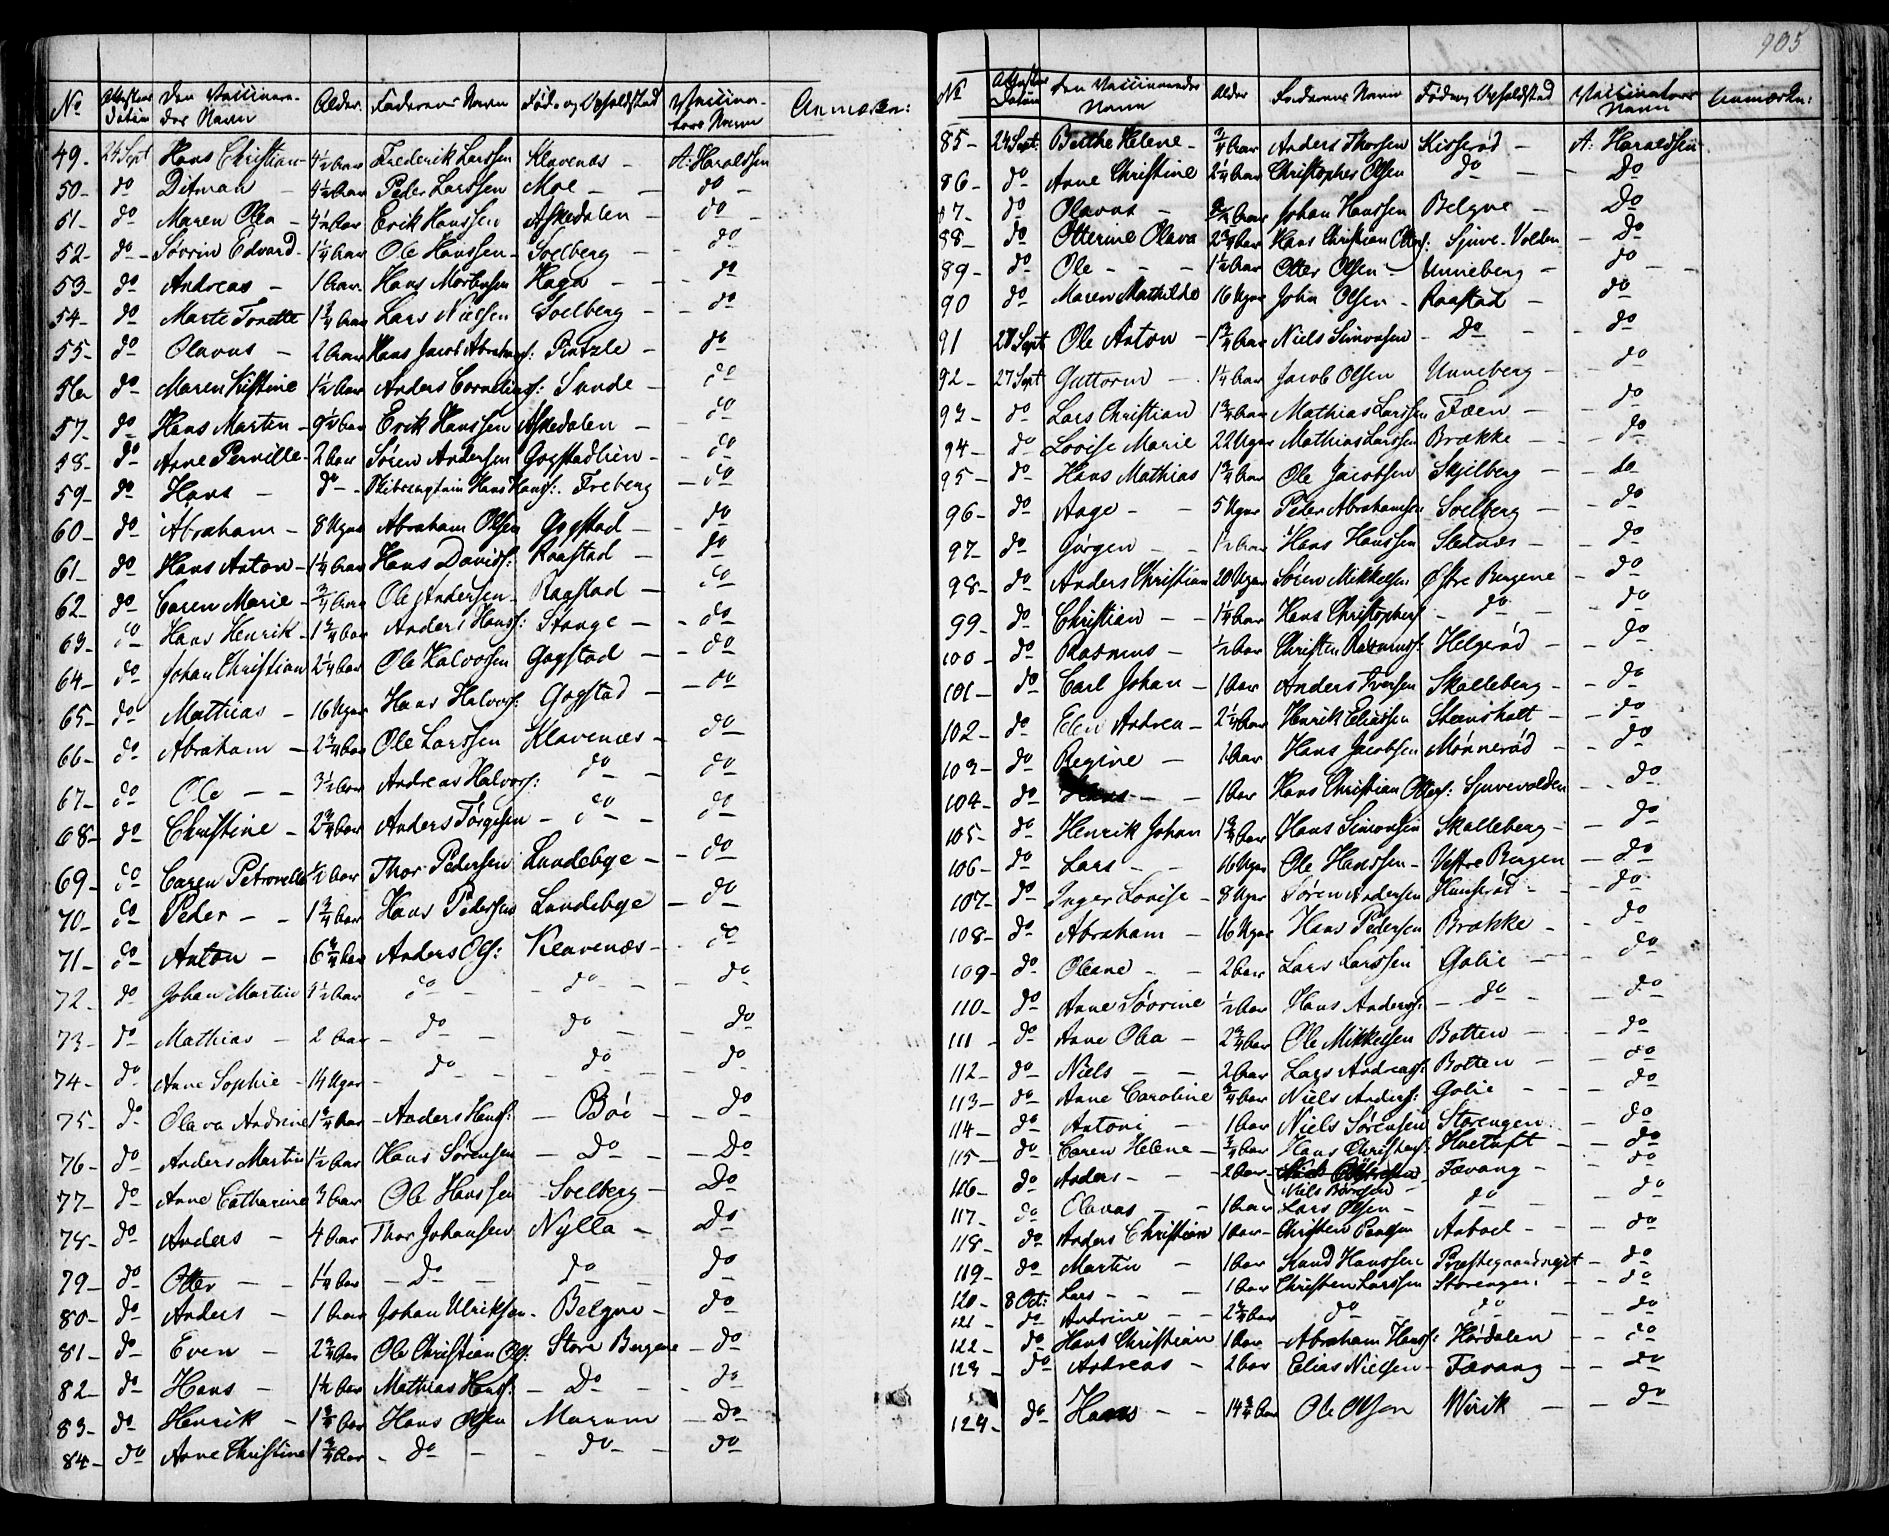 905
No Attestens Datum Den Vaccineredes Navn Alder Faderens Navn Føde og Opholdsted Vaccinators Navn Anmærkn:
49- 24 Sept Hans Christian 4½ Aar Frederik Larssen Klavenæs - A: Haraldsen
50- do Ditman - 4½ Aar Peder Larssen Moe - do -
51- do Maren Olea - 4½ Aar Erik Hanssen Askedalen - do -
52- do - Søvrin Edvard - 1¼ Aar Ole Hanssen - Soelberg - do
53- do Andreas - 1 Aar Hans Mortensen Haga - do
54- do Marte Tonette 1¾ Aar Lars Nielsen Soelberg - do
55- do Olavus - 2 Aar Hans Jacob Abrahams: - do
56- do Maren Kistine 1½ Aar Anders Cornelius: Sunde - do
57- do Hans Martin - 9½ Aar Erik Hanssen Askedalen - do
58- do Anne Pernille - 2 Aar Søren Andersen Gogstadhien - do
59- do Hans - do - Hans Hans: Freberg - do
60- do Abraham - 8 Uger Abraham Olsen Gogstad - do
61- do Hans Anton - 1¼ Aar Hans Davids: Raastad - do
62- do Caren Marie - ¾ Aar Ole Andersen - Raastad - do
63- do Hans Henrik - 1¾ Aar Anders Hans: Stange - do
64- do Johan Christian 2¼ Aar Ole Halvorsen Gogstad - do
65- do Mathias - 16 Uger Hans Halvors: Gogstad - do
66- do Abraham - 2¾ Aar Ole Larssen Klavenæs - do
67- do Ole - - 3½ Aar Andreas Halvors: do - do
68- do Christine - 2¾ Aar Anders Törgesen - do - do
69- do Caren Petronelle ½ Aar Thor Pedersen Lundebye - do
70- do Peder - - 1¾ Aar Hans Pedersen Lundebye - do
71- do Anton - 6¾ Aar Anders Ols: Klavenæs - do
72- do Johan Martin 4½ Aar do - do - do
73- do Mathias - 2 Aar - do - do - do
74- do Anne Sophie - 14 Uger - do - do - do
75- do Olava Andrine 1¾ Aar - Anders Hans: - Böe - do
76- do Anders Martin 1½ Aar Hans Sörensen - Do - Do
77- do Anne Catharine 3 Aar Ole Hanssen - Soelberg - Do
78- do Anders - 4 Aar Thor Johansen Nylla - Do
79- do Otter - - 1¼ Aar - Do - do - do
80- do Anders - 1 Aar Johan Ulriksen - Belgua - do
81- do Even - 2¾ Aar Ole Christian Ols: Store Bergene - do
82- do Hans - 1½ Aar Mathias Hans: - Do - do
83- do Henrik - 1¾ Aar Hans Olsen Marum - Do
84- do Anne Christine 1¾ Aar - do - do - do
No Attestens Datum Den Vaccineredes Navn Alder Faderens Navn Føde og Opholdsted Vaccinators Navn Anmærkn:
85- 24 Sept: Berthe Helene - ¾ Aar Anders Thorsen Kisserød - A: Haraldsen
86- do Anne Christine 2¼ Aar Christopher Olsen do - Do
87- do Olavus - Aar Johan Hanssen Belgue - Do
88- do Otterine Olava 2¾ Aar Hans Christian Otters: Sjuve-Volden - Do
89- do Ole - - - 1½ Aar Otter Olsen - Unneberg - do -
90 do Maren Mathilde 16 Uger John Olsen - Raastad - do
91 28 Sept Ole Anton - 1¾ Aar Niels Simonsen - Do - do
92- 27 Sept Guttorm - 1¼ Aar Jacob Olsen Unneberg - do
93- do Lars Christian 1¾ Aar Mathias Larssen Fæen - do
94- do Lovise Marie 22 Uger Mathias Larssen Brække - do
95- do Hans Mathias 1¾ Aar Ole Jacobsen Skjelberg - do
96- do Aage - - 5 Uger Peder Abrahamsen Soelberg - do
97- do Gørgen - - 1½ Aar Hans Hanssen Stednæs - do
98- do Anders Christian 20 Uger Søren Mikkelsen Østre Bergene - do
99- do Christian - - 1¼ Aar Hans Christophers - do - do
100- do Rasmus - ½ Aar Christen Rasmuss: Helgerød - do
101- do Carl Johan - 1 Aar Anders Iversen Skalleberg - do
102- do Elen Andrea - 2¼ Aar Henrik Eliassen Steensholt - do
103- do Regine - 1 Aar Hans Jacobsen Mønnerød - do
104- do Hans - - 1 Aar Hans Christian Otters: Sjuvevolden - do
105- do Henrik Johan 1¾ Aar Hans Simonsen Skalleberg - do
106- do Lars - - 16 Uger Ole Hanssen - Vestre Bergen - do
107- do Inger Lovise - 8 Uger Søren Andersen Hunserød - do
108- do Abraham - 16 Uger Hans Pedersen Brække - do
109- do Oleane - - 2 Aar Lars Larssen Golie - do
110- do Anne Søvrine ½ Aar Hans Anders: - do - do
111- do Anne Olea - 2¾ Aar Ole Mikkelsen Botten - do
112- do Niels - - 2 Aar Lars Andreas: Botten - do
113- do Anne Caroline ¾ Aar Niels Anders: Golie - do
114- do Antoni - 1 Aar Niels Sørensen Storengen - do
115- do Caren Helene - ¾ Aar Hans Christens: Hvetuft - do
116- do Anders - - 2 Aar - Niels Børresen Fævang - do
117- do Olavas - 1 Aar Lars Olsen - do - do
118- do Anders Christian 1 Aar - Christen Paulsen Aaboel - do
119- do Martin - 1 Aar Knud Hanssen Præstegaardseyet - do
120- 8 Oct: Lars - - 1 Aar Christen Larssen Storengen - do
121- do Andrine - 2¾ Aar do do - do
122- do Hans Christian 1 Aar - Abraham Hans: Hørdalen - do
123- do Andreas - 2 Aar Elias Nielsen - Fævang - do
124- do Hans - - 14¾ Aar Ole Olsen Wirik - do